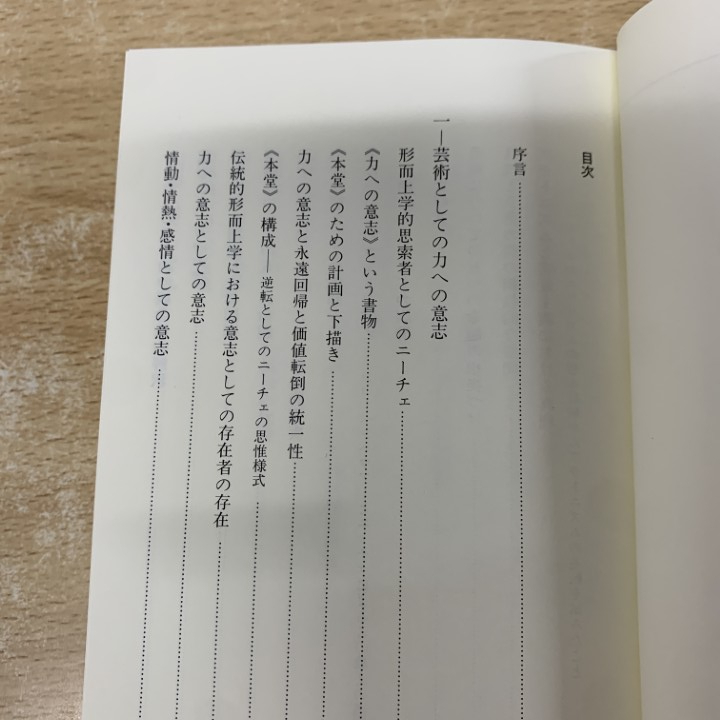 目次
序言
一―芸術としての力への意志
形而上学的思索者としてのニーチェ
《力への意志》という書物
《本堂》のための計画と下描き
力への意志と永遠回帰と価値転倒の統一性
《本堂》の構成――逆転としてのニーチェの思惟様式
伝統的形而上学における意志としての存在者の存在
力への意志としての意志
情動・情熱・感情としての意志